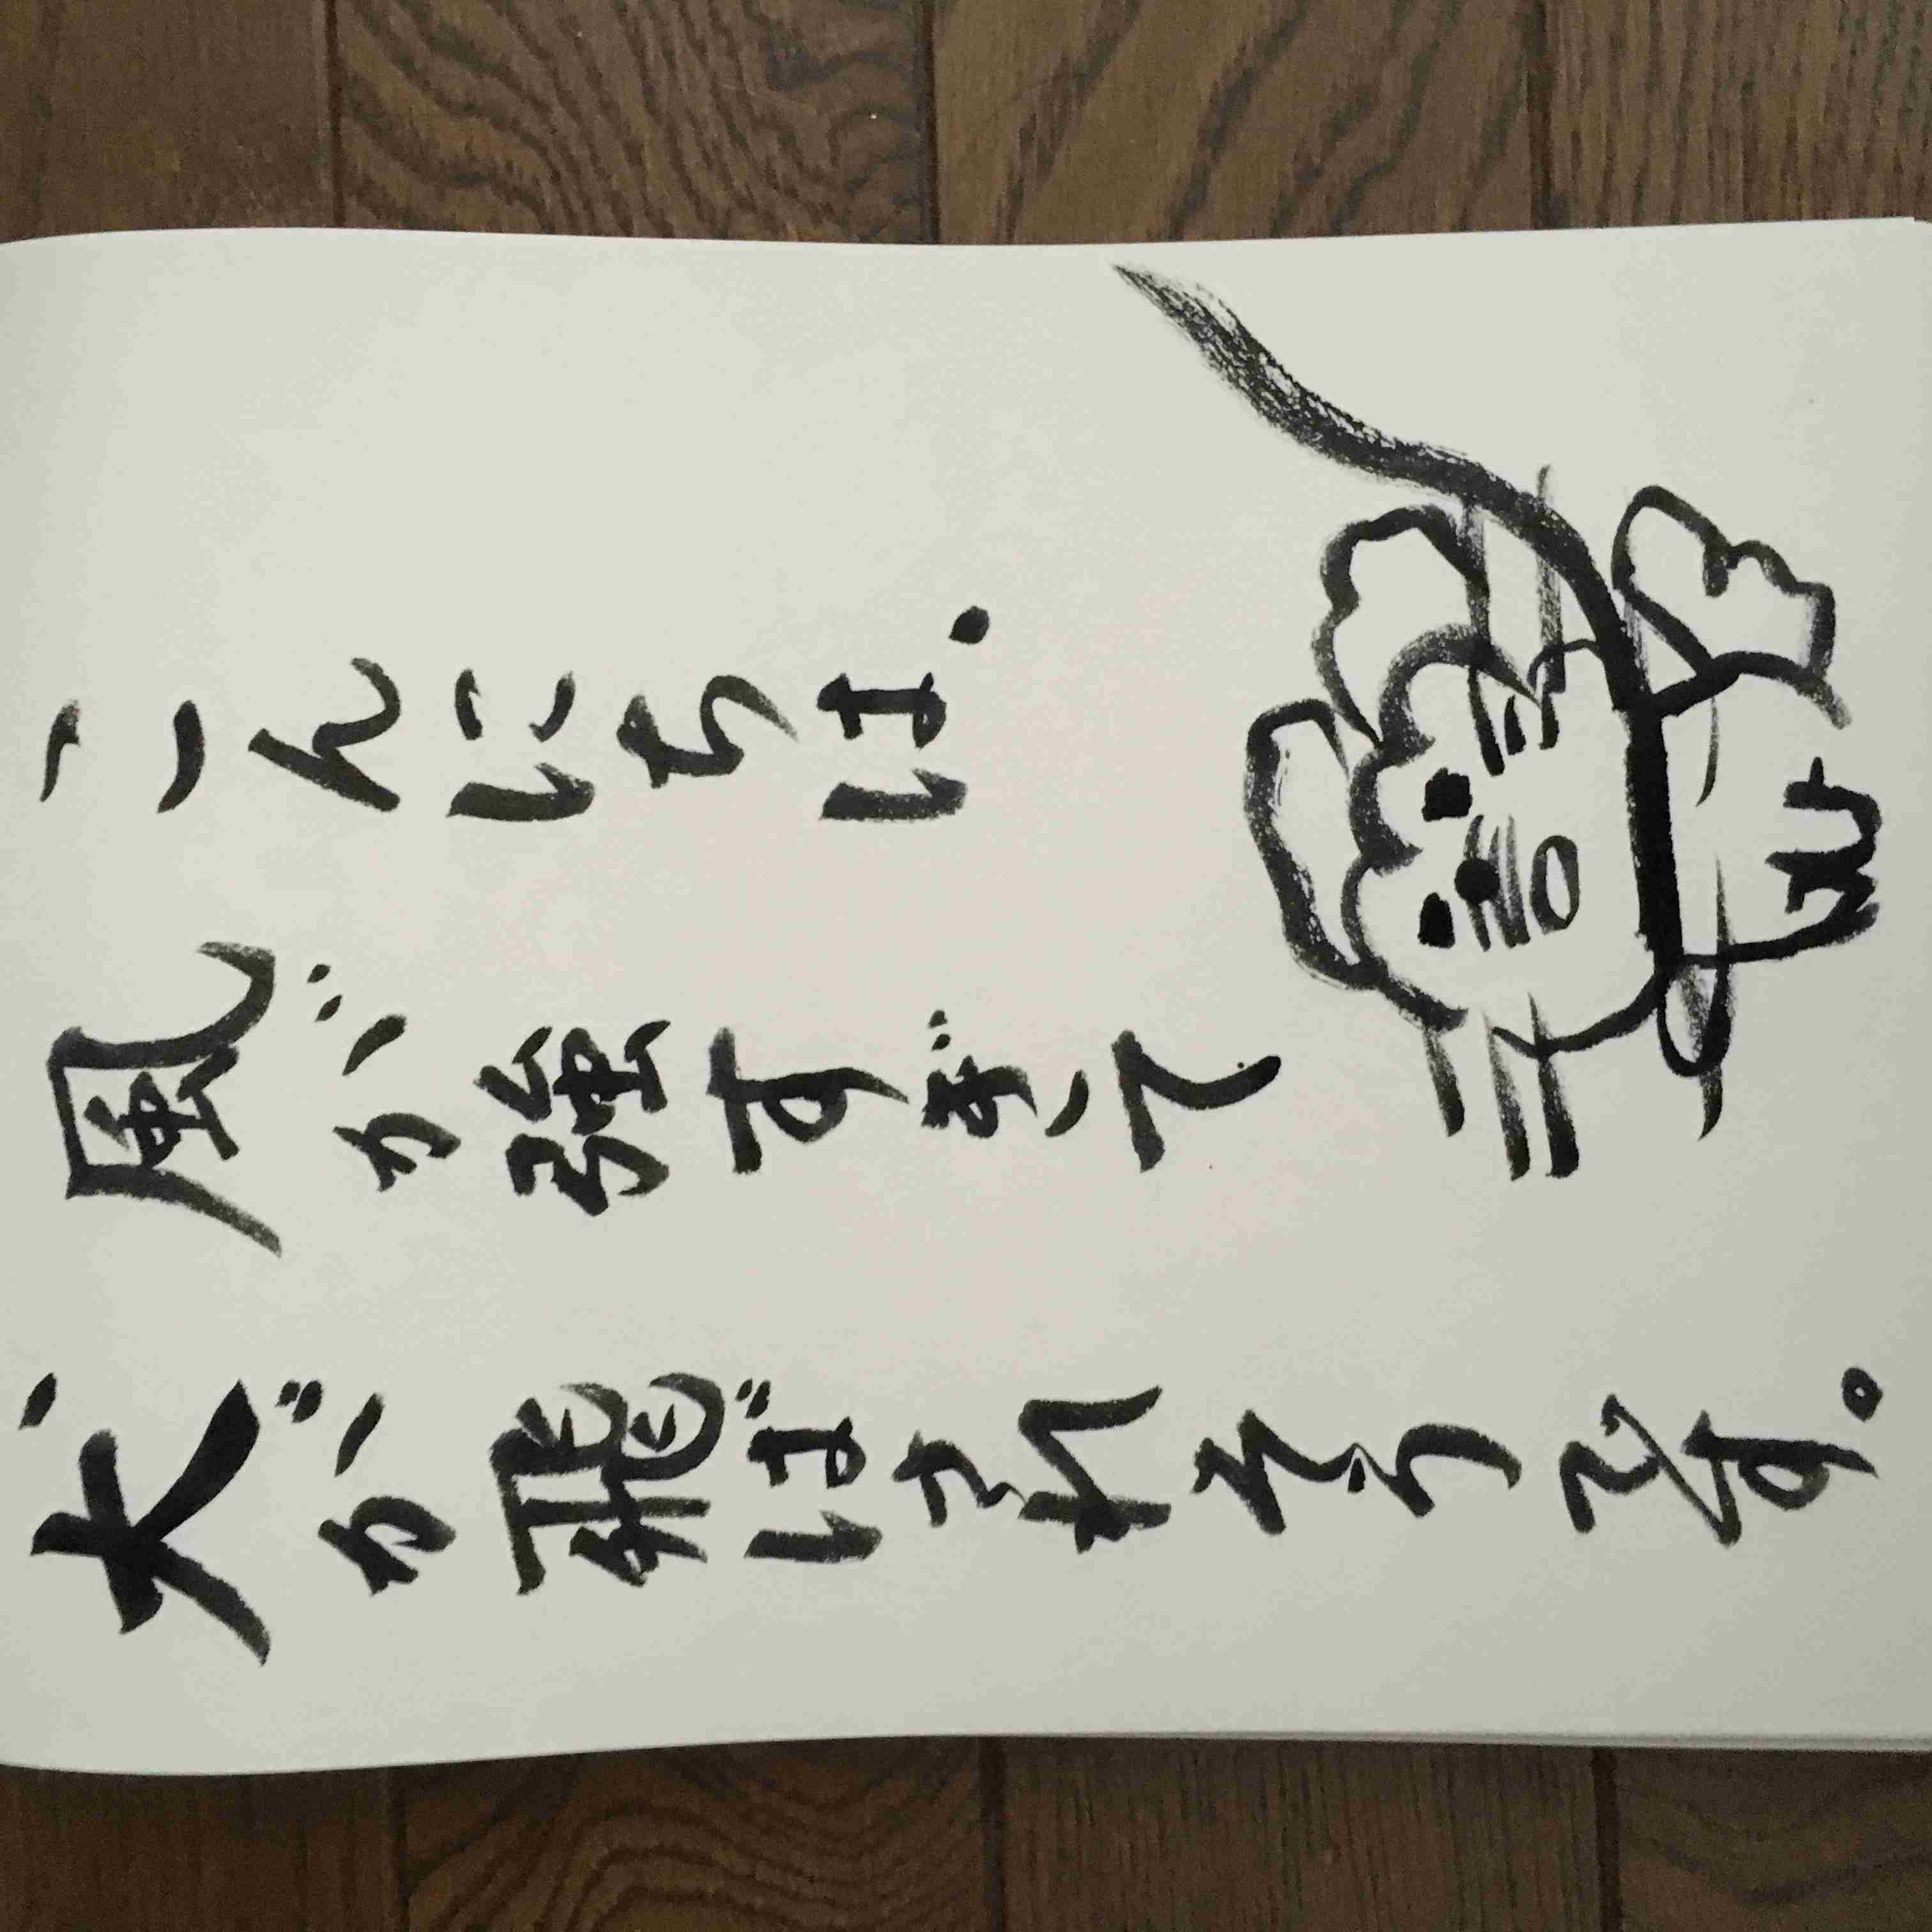 こんにちは。
風が強すぎて
犬が飛ばされそうです。